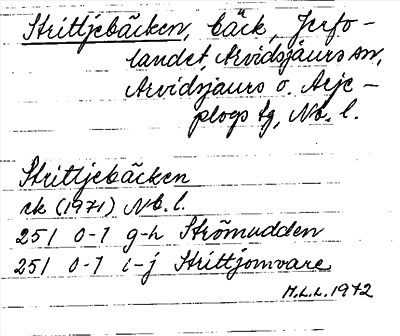 Strittjebäcken, bäck, Jerfo-
landet, Arvidsjaurs sn,
Arvidsjaurs o. Arje-
plogs tg, Nb. l.
Strittjebäcken
rk (1971) Nb. l.
25 I 0-1 g-h Strömudden
25 I 0-1 i-j Strittjomvare
M.L.L. 1972